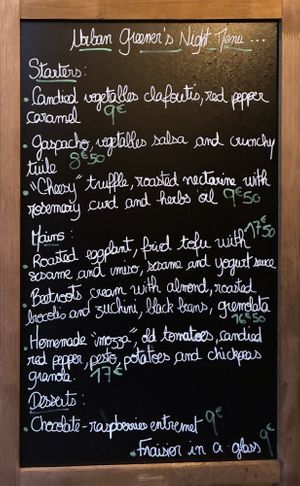 Urban Greener's Night Menu...
Starters:
• Candied vegetables clafoutis, red pepper
caramel 9€
• Gaspacho, vegetables salsa and crunchy
tuile 8€50
• "Cheesy" truffle, roasted nectarine with
rosemary curd and herbs oil 9€50
Mains:
• Roasted eggplant, fried tofu with 17€50
sesame and miso, sesame and yogurt sauce
• Beetroots cream with almond, roasted
brocolis and zuchini, black beans, gremolata
16€50
• Homemade "mozza", old tomatoes, candied
red pepper, pesto, potatoes and chickpeas
granola. 17€
Desserts:
• Chocolate-raspberries entremet 9€
• Fraisier in a glass 9€